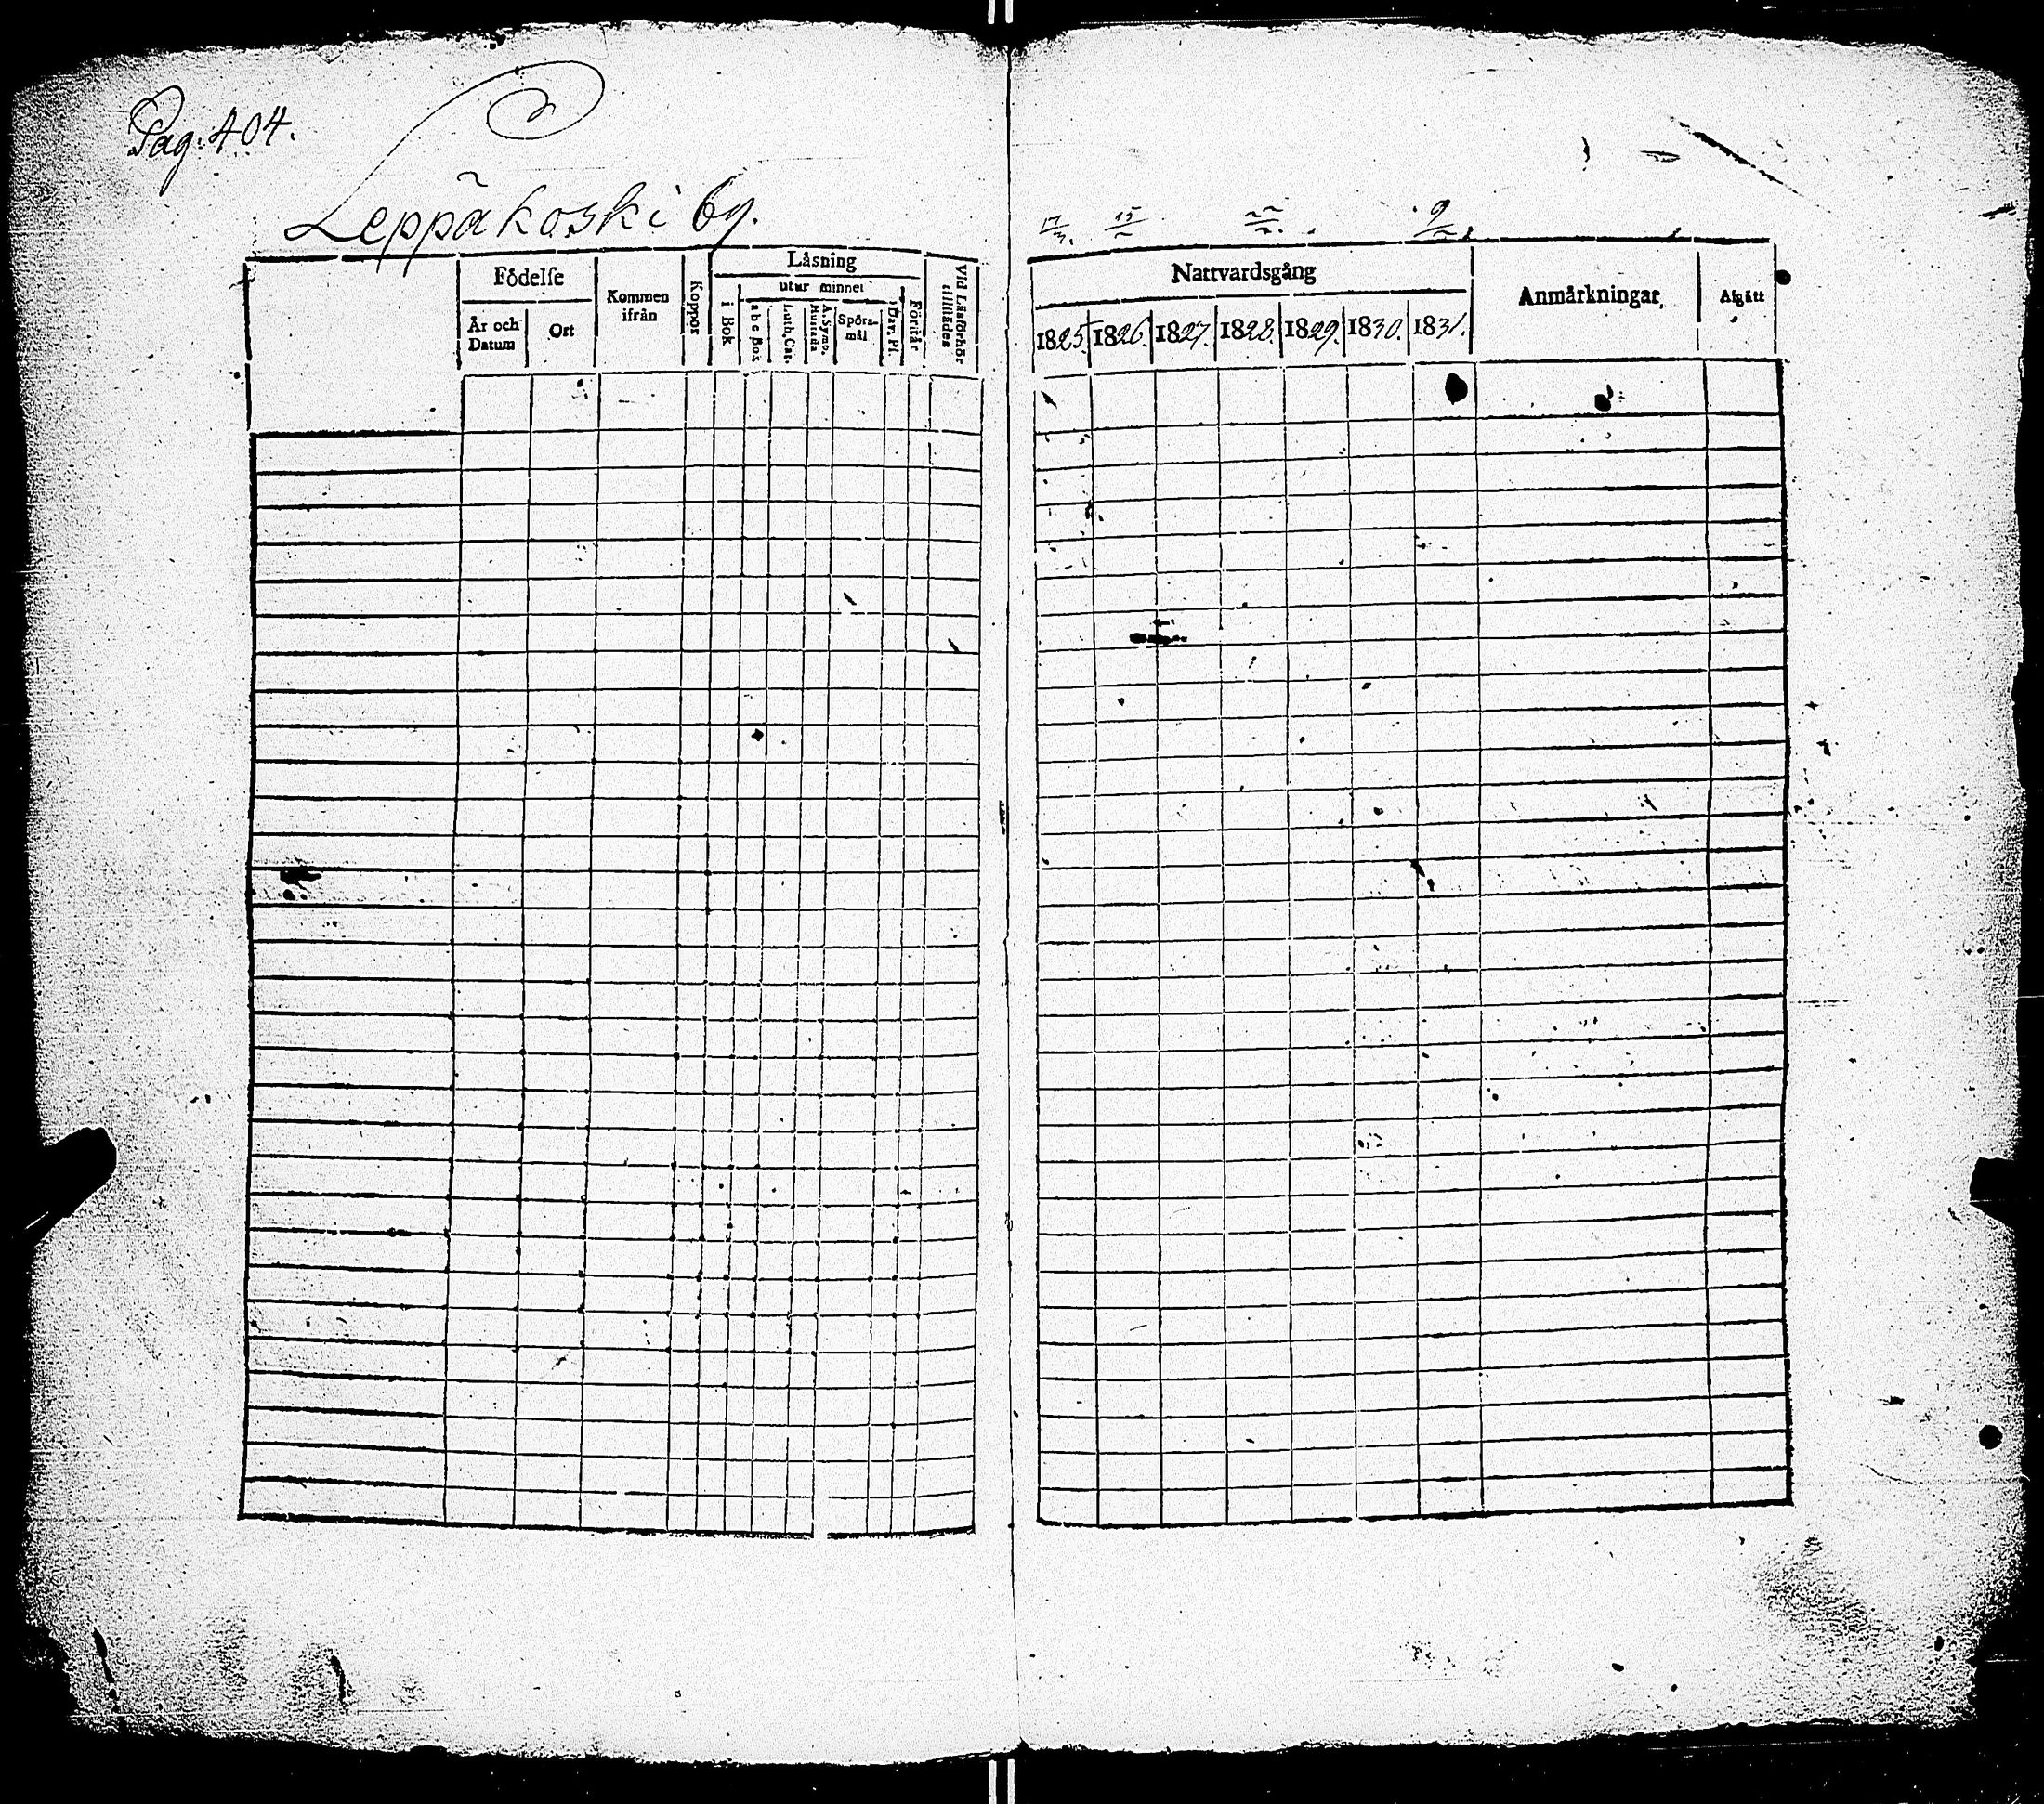 Pag: 404.
Leppãkoski by.
Födelse
År och Datum
Ort
Kommen ifrån
Koppor
Låsning
i Bok
utur minnet
a b c Bok
Luth. Cat.
A. Symb. Hustafla
Spörsmål
Dav. Ps.
Förstår
Vid Läsförhör tillstädes
17/3.
Nattvardsgång
1825. 1826. 1827. 1828. 1829. 1830. 1831.
Anmärkningar
Afgått